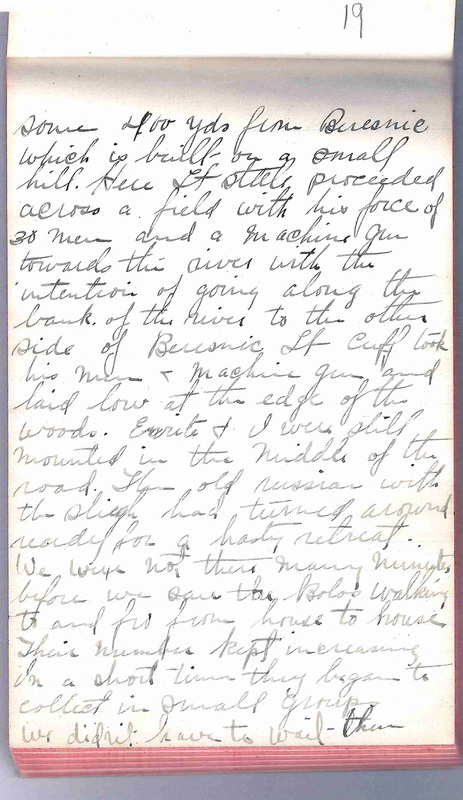 19
some 400 yds from Beresnic
which is built on a small
hill. Here Lt Steel proceeded
across a field with his force of
30 men and a machine gun
towards the river with the
intention of going along the
bank of the river to the other
side of Beresnic Lt Cuff took
his men & machine gun and
laid low at the edge of the
woods. & I were still
mounted in the middle of the
road. The old russian with
the sleigh had turned around
ready for a hasty retreat.
We were not there many minutes
before we saw the Bolos walking
to and fro from house to house
Their number kept increasing
In a short time they began to
collect in small group
we didn't have to wait then